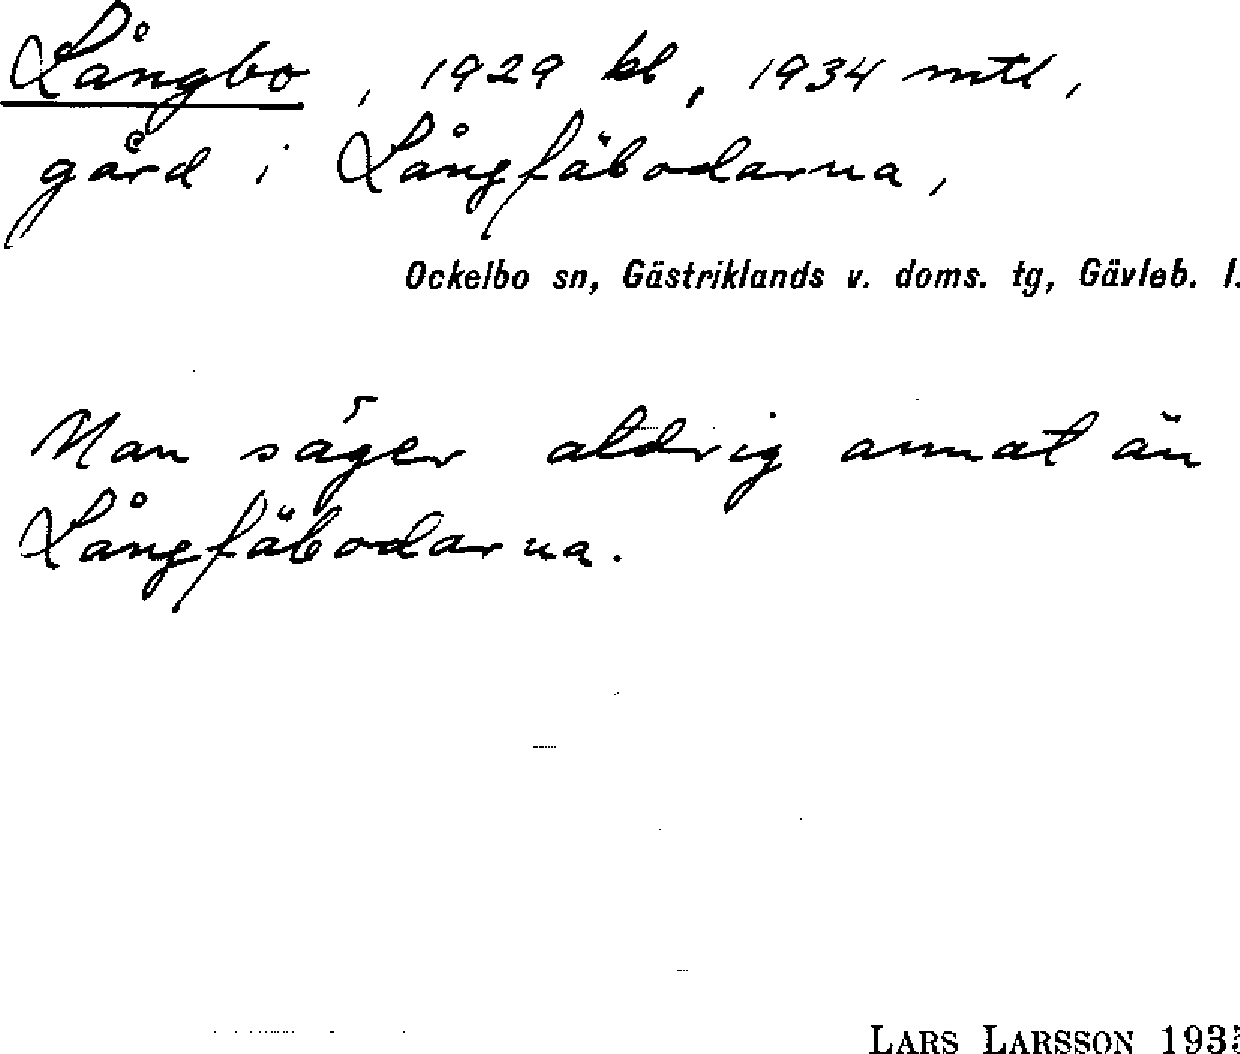 Långbo, 1929 kl, 1934 mtl,
gård i Långfäbodarna,
Ockelbo sn, Gästriklands v. doms. tg, Gävleb. l.
Man säger aldrig annat än
Långfäbodarna.
LARS LARSSON 1935